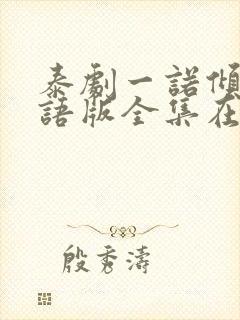 泰劇一諾傾
語版全集在
殷秀濤